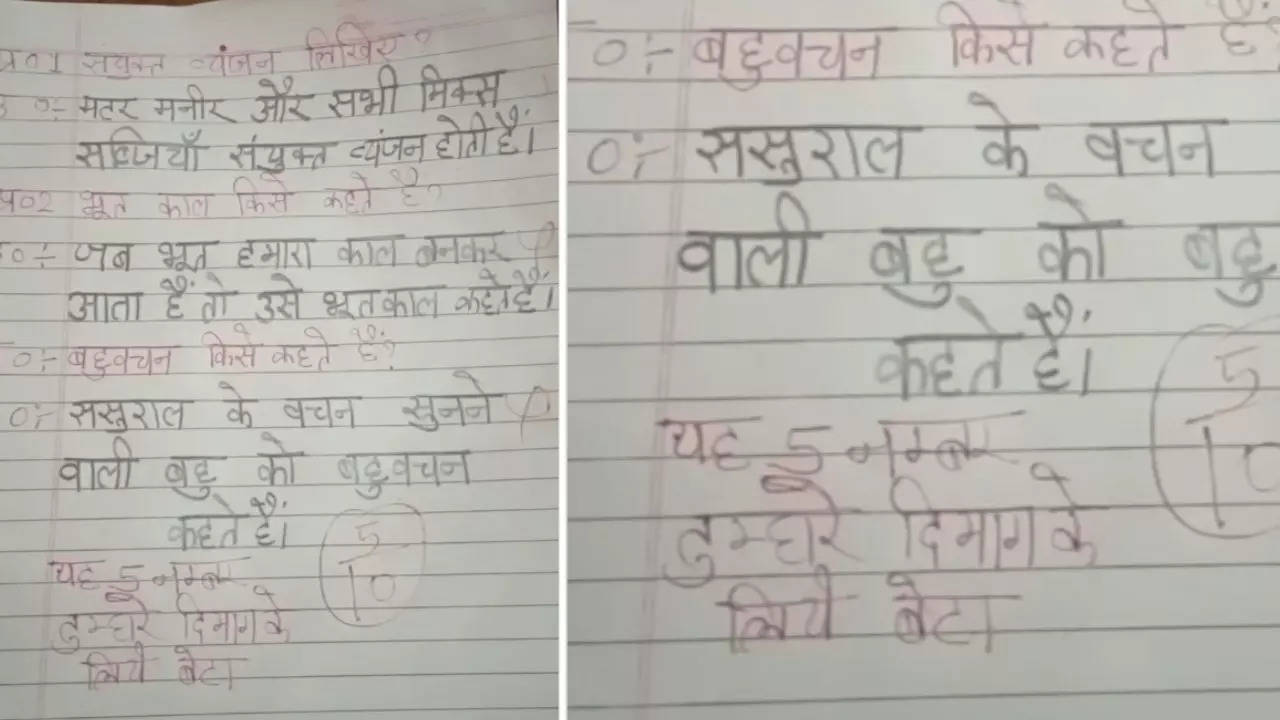 प्र०1 संयुक्त व्यंजन लिखिए?
उ०:- मटर मनीर और सभी मिक्स
सब्जियाँ संयुक्त व्यंजन होती हैं।
प्र०2 भूत काल किसे कहते है?
उ०:- जब भूत हमारा काल बनकर
आता हैं तो उसे भूतकाल कहते हैं।
०:- बहुवचन किसे कहते हैं?
०:- ससुराल के वचन सुनने
वाली बहु को बहुवचन
कहते हैं।
5
10
यह 5 नम्बर
तुम्हारे दिमाग के
लिये बेटा
०:- बहुवचन किसे कहते हैं
०:- ससुराल के वचन
वाली बहु को बहु
कहते हैं।
5
10
यह 5 नम्बर
तुम्हारे दिमाग के
लिये बेटा